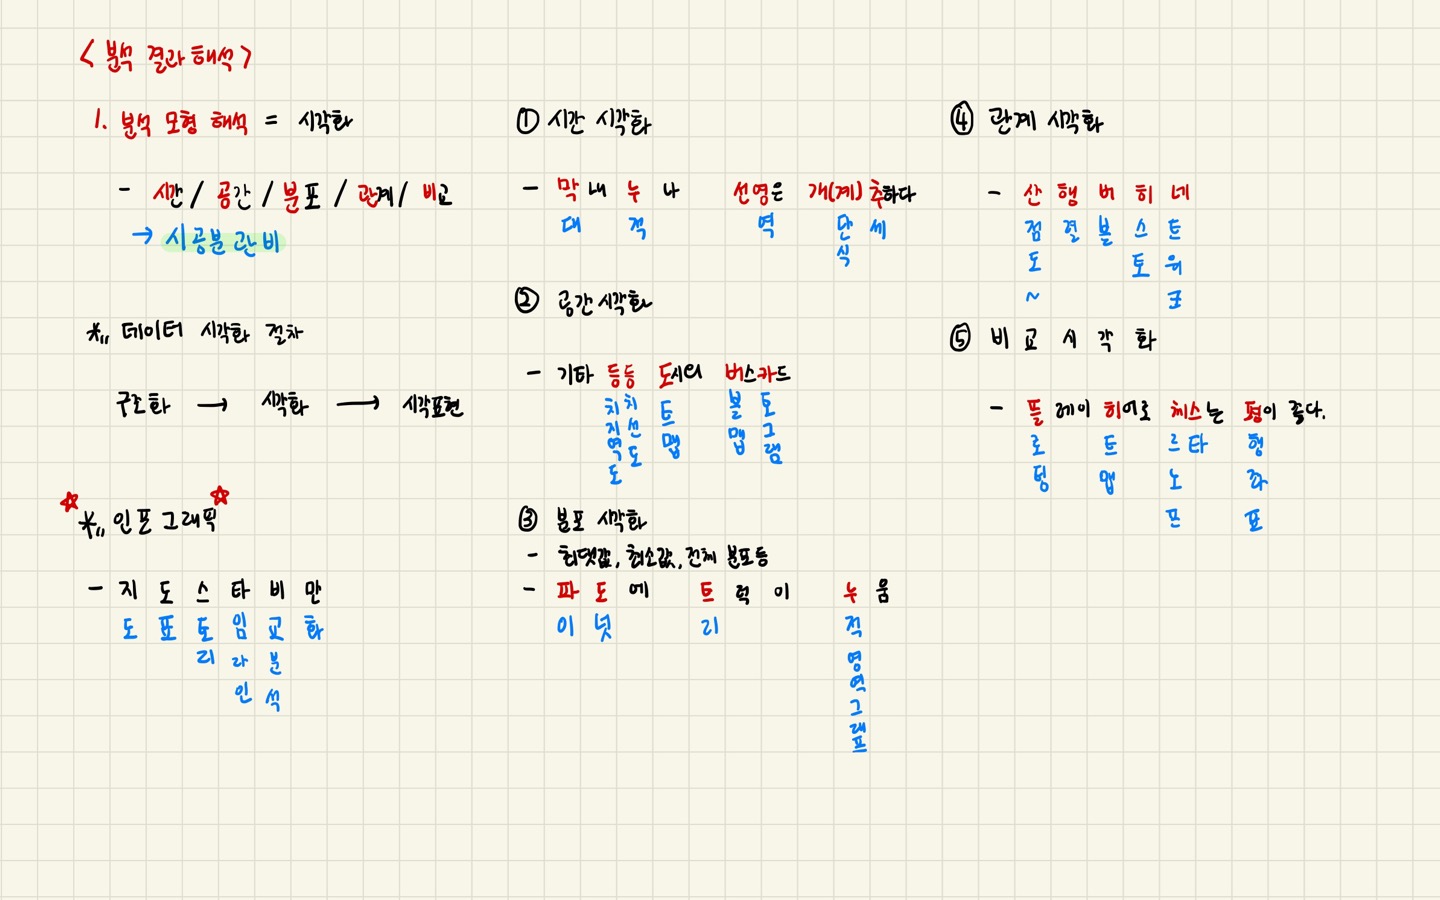 < 분석 결과 해석 >
1. 분석 모형 해석 = 시각화
- 시간 / 공간 / 분포 / 관계 / 비교
→ 시공분관비
※ 데이터 시각화 절차
구조화 → 시각화 → 시각표현
☆ ※ 인포그래픽 ☆
- 지 도 스 타 비 만
도 표 토 임 교 화
리 라 분
인 석
① 시간 시각화
- 막 내 누 나 선영은 개(계) 추하다
대 적 역 단 세
식
② 공간 시각화
- 기타 등등 도시의 버스카드
치 치 트 블 토
지 선 맵 맵 그
역 도 램
도
③ 분포 시각화
- 최댓값, 최소값, 전체 분포 등
- 파 도 에 트 럭 이 누 움
이 넛 리 적
영
역
그
래
프
④ 관계 시각화
- 산 행 버 히 네
점 렬 블 스 트
도 토 워
~ 크
⑤ 비 교 시 각 화
- 플 레이 히어로 체스는 평이 좋다.
로 트 르 타 행
팅 맵 노 좌
프 표